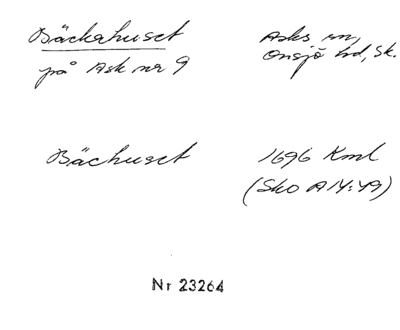 Bäckahuset
på Ask nr 9
Asks sn,
Onsjö hd, Sk.
Bächuset
1696 Kml
(Sko A 14:49)
Nr 23264